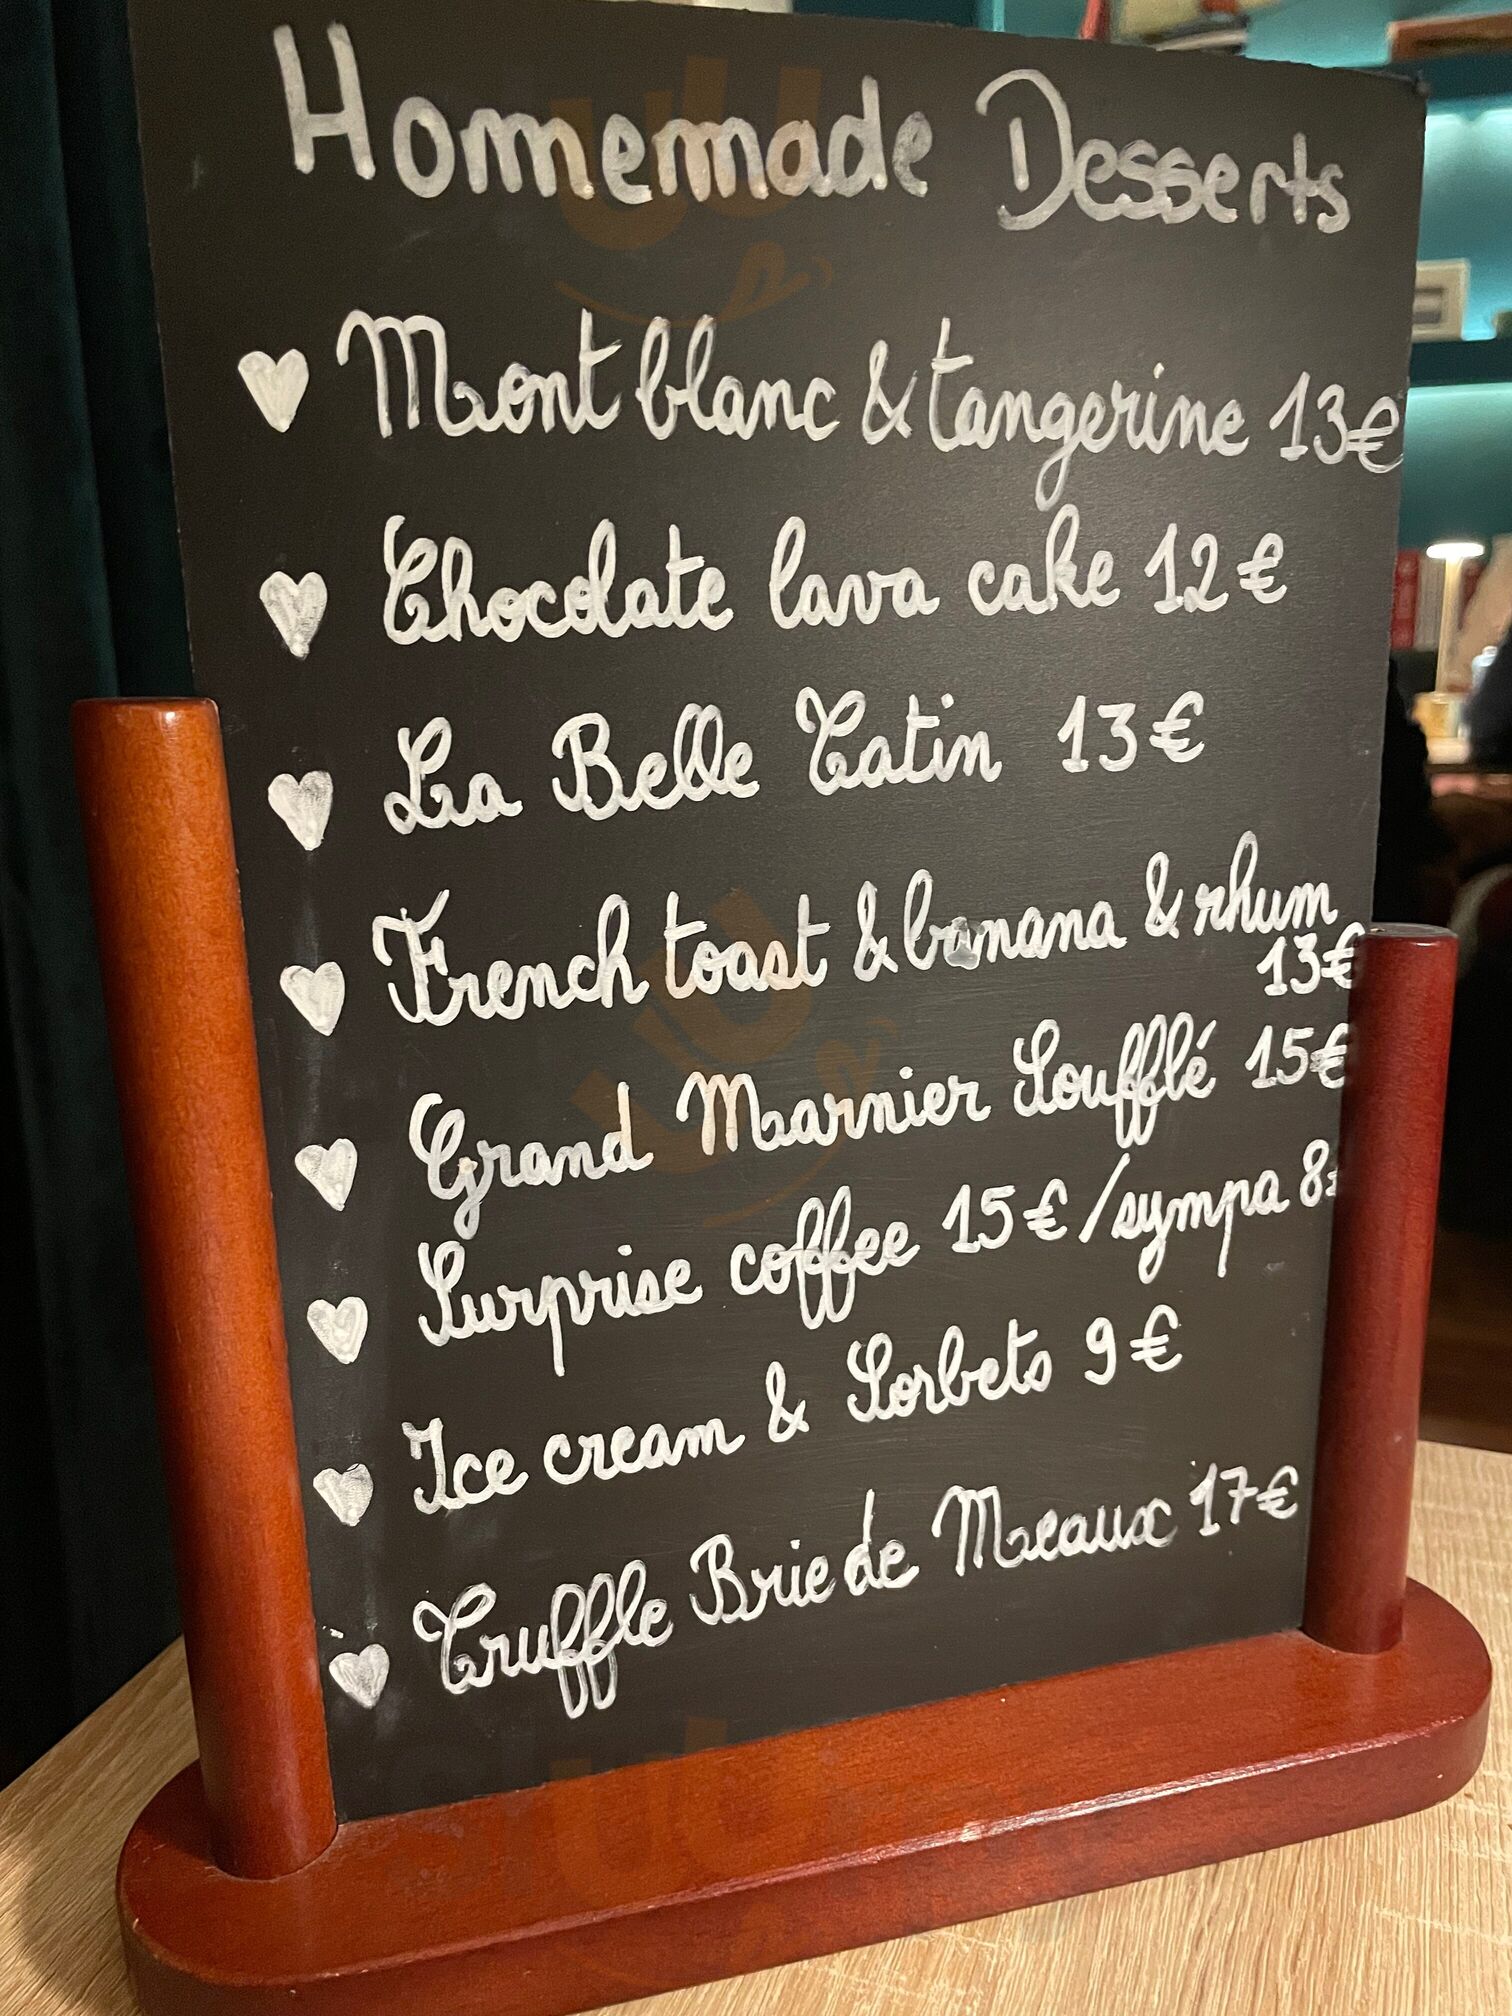 Homemade Desserts
Mont blanc & tangerine 13€
Chocolate lava cake 12€
La Belle Tatin 13€
French toast & banana & rhum
13€
Grand Marnier Soufflé 15€
Surprise coffee 15€/sympa 8€
Ice cream & Sorbets 9€
Truffle Brie de Meaux 17€